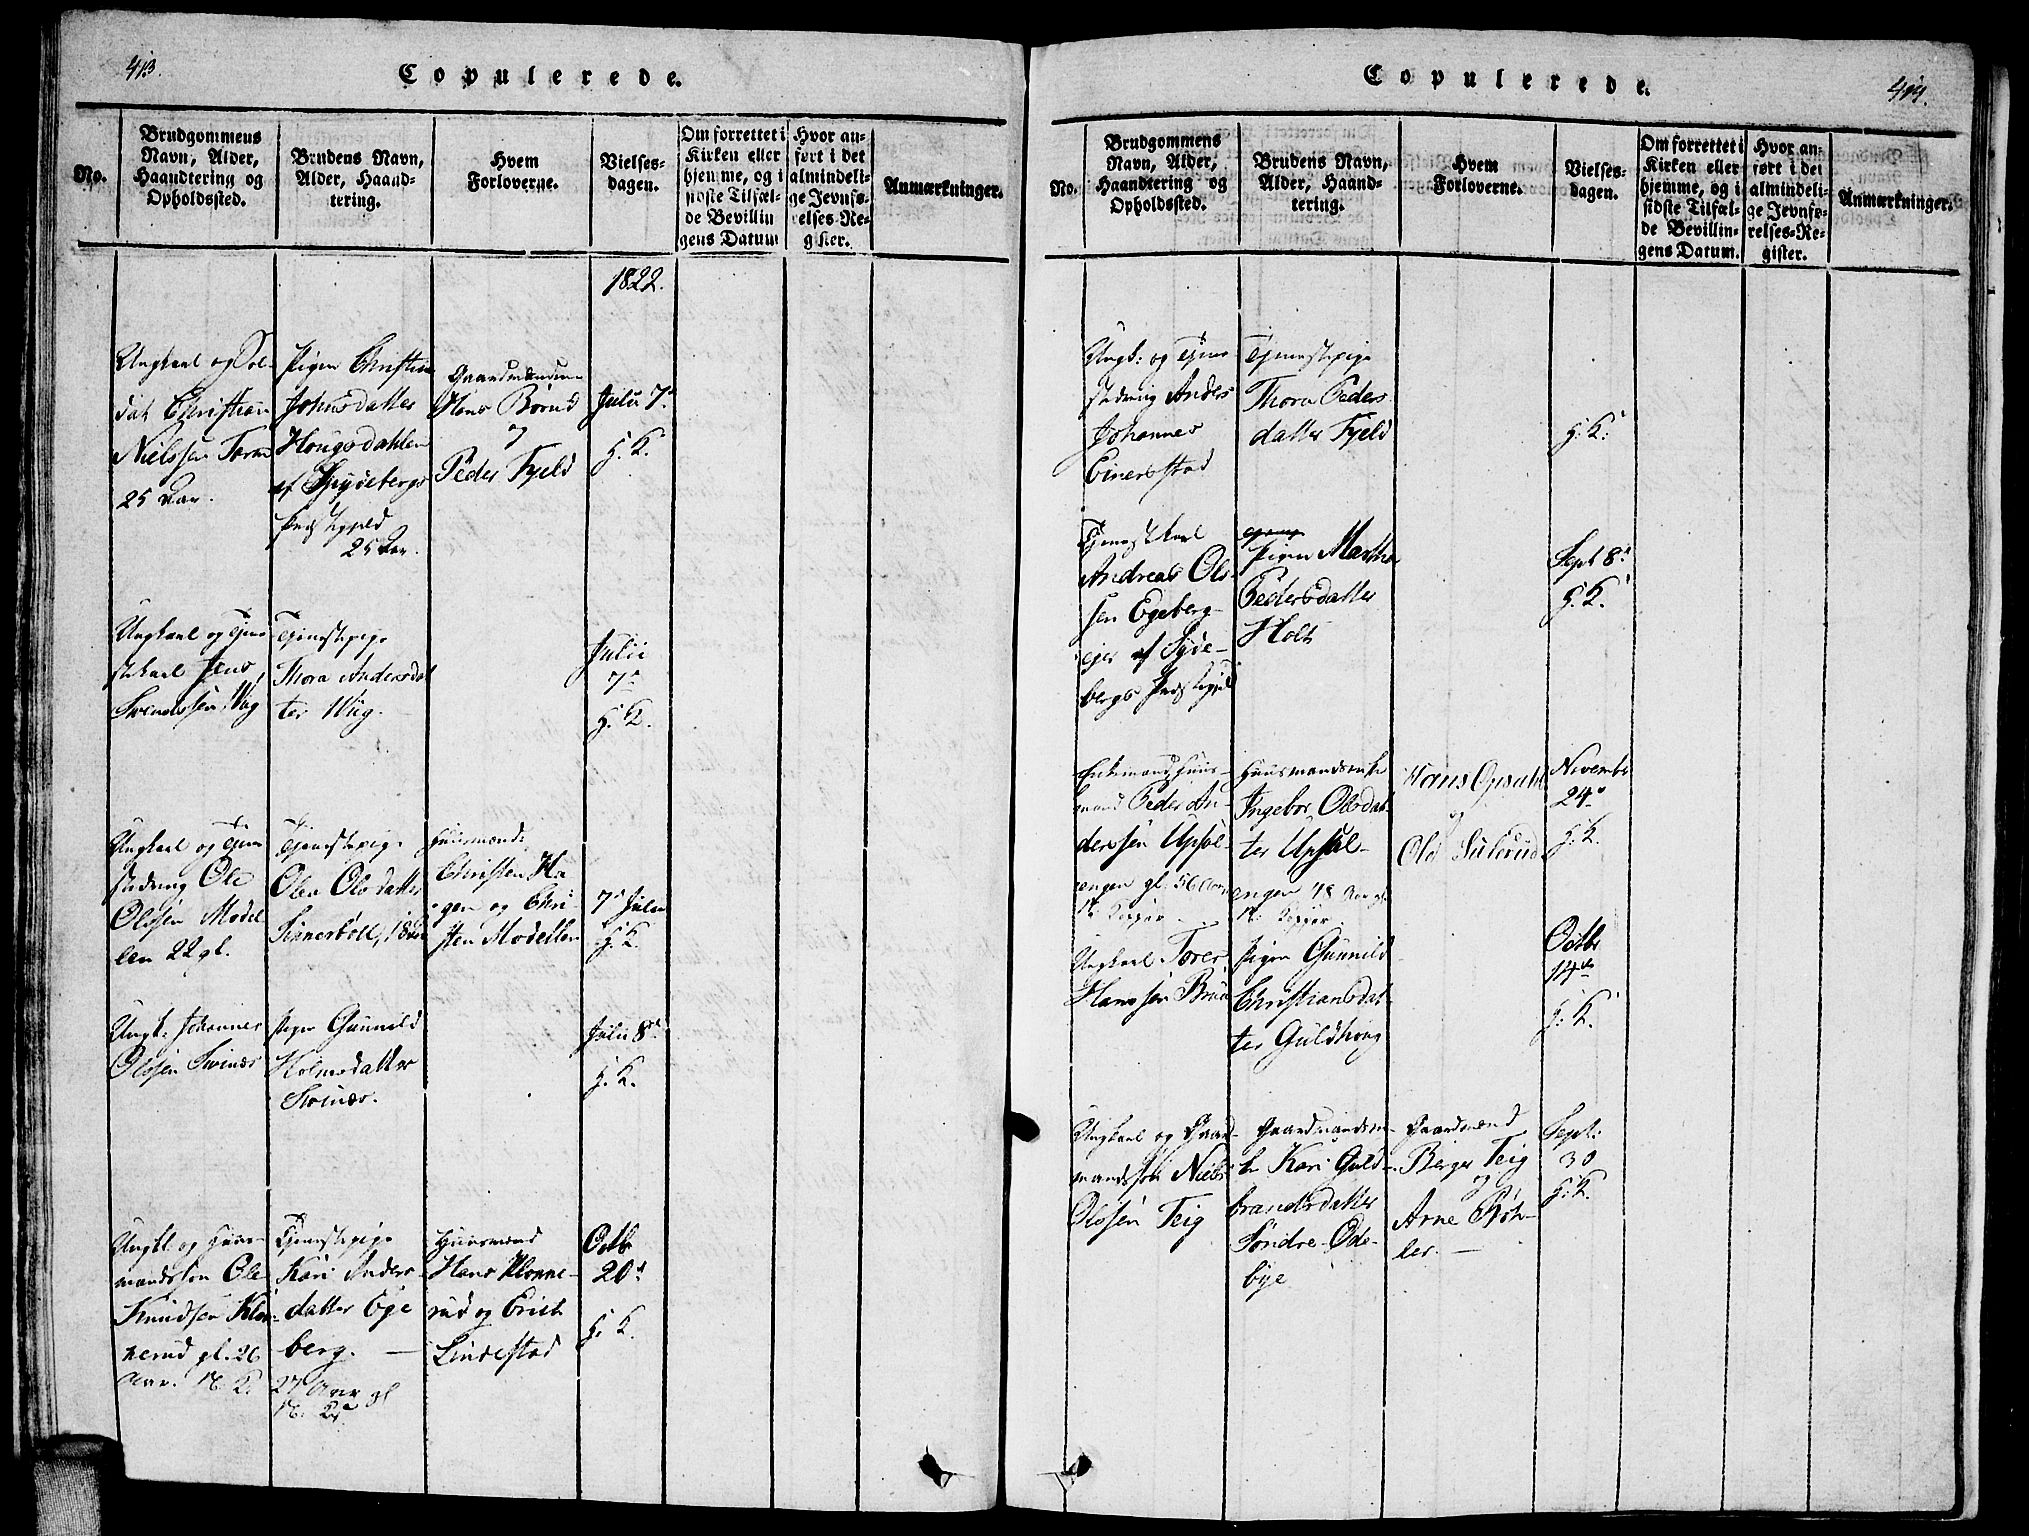 413.
Copulerede.
No.
Brudgommens
Navn, Alder,
Haandtering og
Opholdssted.
Brudens Navn,
Alder, Haand-
tering.
Hvem
Forloverne.
Vielses-
dagen.
Om forrettet i
Kirken eller
hjemme, og i
sidste Tilfæl-
de Bevillin
gens Datum
Hvor an-
ført i det
almindeli-
ge Jevnfø-
relses-Re-
gister.
Anmærkninger.
1822.
Ungkarl og Sol-
dat Christian
Nielssen
25 Aar.
Pigen Christin
Johnsdatter
Hougsdahlen
af Spydebergs
Præstegjeld
25 Aar.
Gaardmændene
Hans
og
Peder Fjeld
Juli 7de
H. K.
Ungkarl og Tjene-
stekarl Jens
Svendssen Wiig
Tjenestepige
Thora Andersdat
ter Wiig.
Julii
7de
H. K.
Ungkarl og Tjene
stedreng Ole
Olssen Model
len 22 gl.
Tjenestepige
Olea Olsdatter
18 Aar
Huusmænd:
Christen Ha
gen og Chri-
sten Modellen
7de Julii
H. K.
Ungk: Johannes
Olssen Svinæs
Pigen Gunnild
Holmsdatter
Svinæs.
Julii 8de
H. K.
Ungk: og Huus-
mandssøn Ole
Knudsen Klon-
nerud gl. 26
Aar. V. K.
Tjenestepige
Kari Anders-
datter Ege
berg.
27 Aar gl
V. K.
Huusmænd
Hans Klonne-
rud og Erich
Lindestad
Octb
20de
H. K.
414.
Copulerede.
No.
Brudgommens
Navn, Alder,
Haandtering og
Opholdssted.
Brudens Navn,
Alder, Haand-
tering.
Hvem
Forloverne.
Vielses-
dagen.
Om forrettet i
Kirken eller
hjemme, og i
sidste Tilfæl-
de Bevillin-
gens Datum.
Hvor an-
ført i det
almindeli-
ge Jevnfø-
relses-Re-
gister.
Anmærkninger.
Ungk: og Tjene-
stedreng Anders
Johannes
Einerstad
Tjenestepige
Thora Peders
datter Fjeld
H. K:
Tjenestekarl
Andreas Ols-
sen Egeberg-
ejer af Spyde-
bergs Præstegjeld
Pigen Martha
Pedersdatter
Holt
Sept 8de
H. K.
Enkemand Huus-
mand Peder An-
derssen Upsal-
engen gl. 56 Aar
V. Kopper
Huusmandsenke
Ingebor Olsdat-
ter Upsal-
engen 48 Aar gl.
V. Kopper
Hans Opsahl
og
Ole
Novembr
24de
H. K.
Ungkarl Tores
Hanssen
Pigen Gunnild
Christiansdat-
ter Guldhoug
Octbr
14de
H. K.
Ungkarl og Gaard-
mandssøn Niels
Olssen Teig
Gaardmandsen-
ke Kari Guld-
brandsdatter
Søndre-Ode-
bye
Gaardmænd
Berger Teig
og
Arne Bøh-
ler.
Sept:
30
H. K.